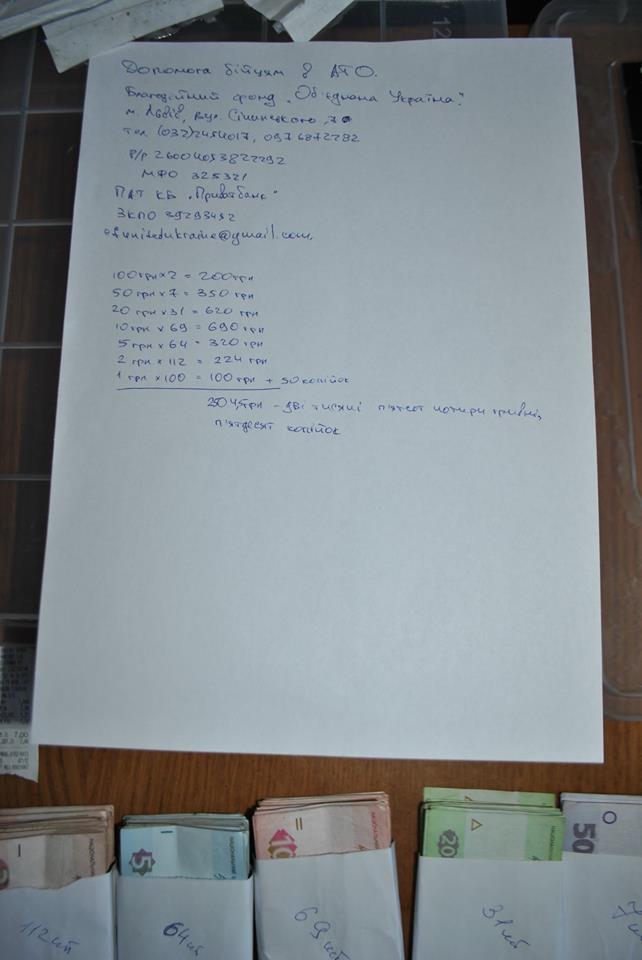 Допомога бійцям в АТО.
Благодійний фонд „Об'єднана Україна".
м. Львів, вул. Січинського, 7
тел. (032)2454017, 0976872782
Р/р 26004053822292
МФО 325321
ПАТ КБ „Приватбанк"
ЗКПО 39293452
funitedukraine@gmail.com,
100 грн × 2 = 200 грн
50 грн × 7 = 350 грн
20 грн × 31 = 620 грн
10 грн × 69 = 690 грн
5 грн × 64 = 320 грн
2 грн × 112 = 224 грн
1 грн × 100 = 100 грн + 50 копійок
2504,5 грн - дві тисячі п'ятсот чотири гривні,
п'ятдесят копійок
12
7,00
5
10
20
50
112 шт
64 шт
69 шт
31 шт